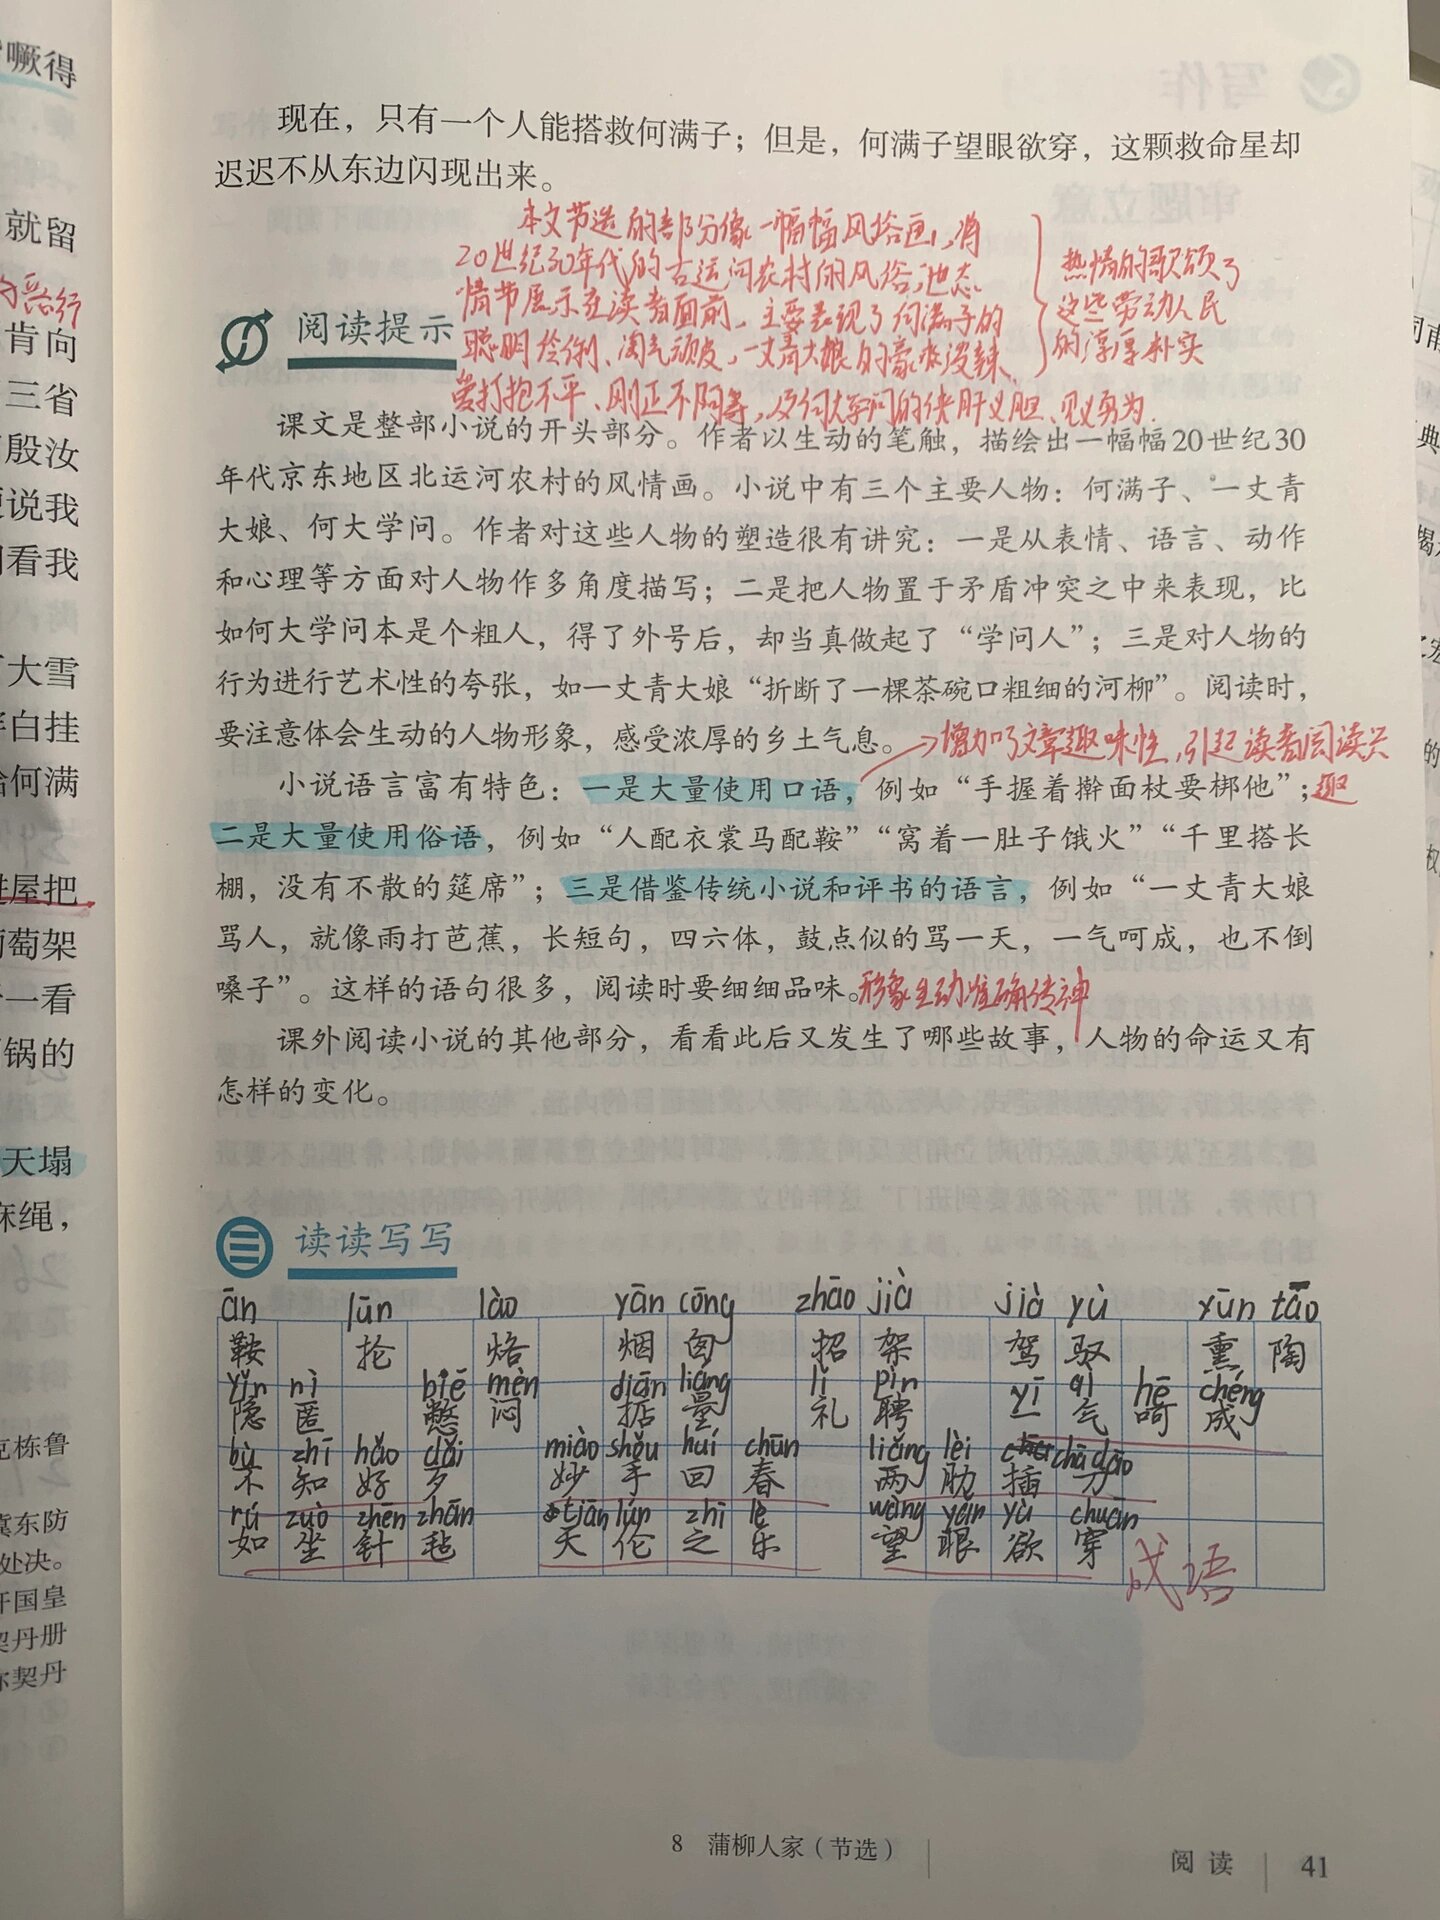 噘得
就留
肯向
三省
殷汝
说我
看我
大雪
白挂
何满
屋把
葡萄架
一看
锅的
天塌
麻绳，
克栋鲁
冀东防
处决。
开国皇
契丹册
你契丹
现在，只有一个人能搭救何满子；但是，何满子望眼欲穿，这颗救命星却
迟迟不从东边闪现出来。
本文节选的部分像一幅幅风俗画，将
20世纪30年代的古运河农村的风俗，世态
情节展示在读者面前，主要表现了何满子的
聪明伶俐、淘气顽皮，一丈青大娘的豪爽泼辣、
爱打抱不平、刚正不阿等，及何大学问的侠肝义胆、见义勇为.
热情的歌颂了
这些劳动人民
的淳厚朴实
阅读提示
课文是整部小说的开头部分。作者以生动的笔触，描绘出一幅幅20世纪30
年代京东地区北运河农村的风情画。小说中有三个主要人物：何满子、一丈青
大娘、何大学问。作者对这些人物的塑造很有讲究：一是从表情、语言、动作
和心理等方面对人物作多角度描写；二是把人物置于矛盾冲突之中来表现，比
如何大学问本是个粗人，得了外号后，却当真做起了“学问人”；三是对人物的
行为进行艺术性的夸张，如一丈青大娘“折断了一棵茶碗口粗细的河柳”。阅读时，
要注意体会生动的人物形象，感受浓厚的乡土气息。
增加了文章趣味性，引起读者阅读兴
趣
小说语言富有特色：一是大量使用口语，例如“手握着擀面杖要梆他”；
二是大量使用俗语，例如“人配衣裳马配鞍”“窝着一肚子饿火”“千里搭长
棚，没有不散的筵席”；三是借鉴传统小说和评书的语言，例如“一丈青大娘
骂人，就像雨打芭蕉，长短句，四六体，鼓点似的骂一天，一气呵成，也不倒
嗓子”。这样的语句很多，阅读时要细细品味。
形象生动准确传神
课外阅读小说的其他部分，看看此后又发生了哪些故事，人物的命运又有
怎样的变化。
读读写写
ān lūn lào yān cōng zhāo jià jià yù xūn táo
鞍 抡 烙 烟 囱 招 架 驾 驭 熏 陶
yǐn nì biē mèn diān liáng lǐ pìn yī qì hē chéng
隐 匿 憋 闷 掂 量 礼 聘 一 气 呵 成
bù zhī hǎo dǎi miào shǒu huí chūn liǎng lèi chā dāo
不 知 好 歹 妙 手 回 春 两 肋 插 刀
rú zuò zhēn zhān tiān lún zhī lè wàng yǎn yù chuān
如 坐 针 毡 天 伦 之 乐 望 眼 欲 穿
成语
8 蒲柳人家（节选）
阅读 41